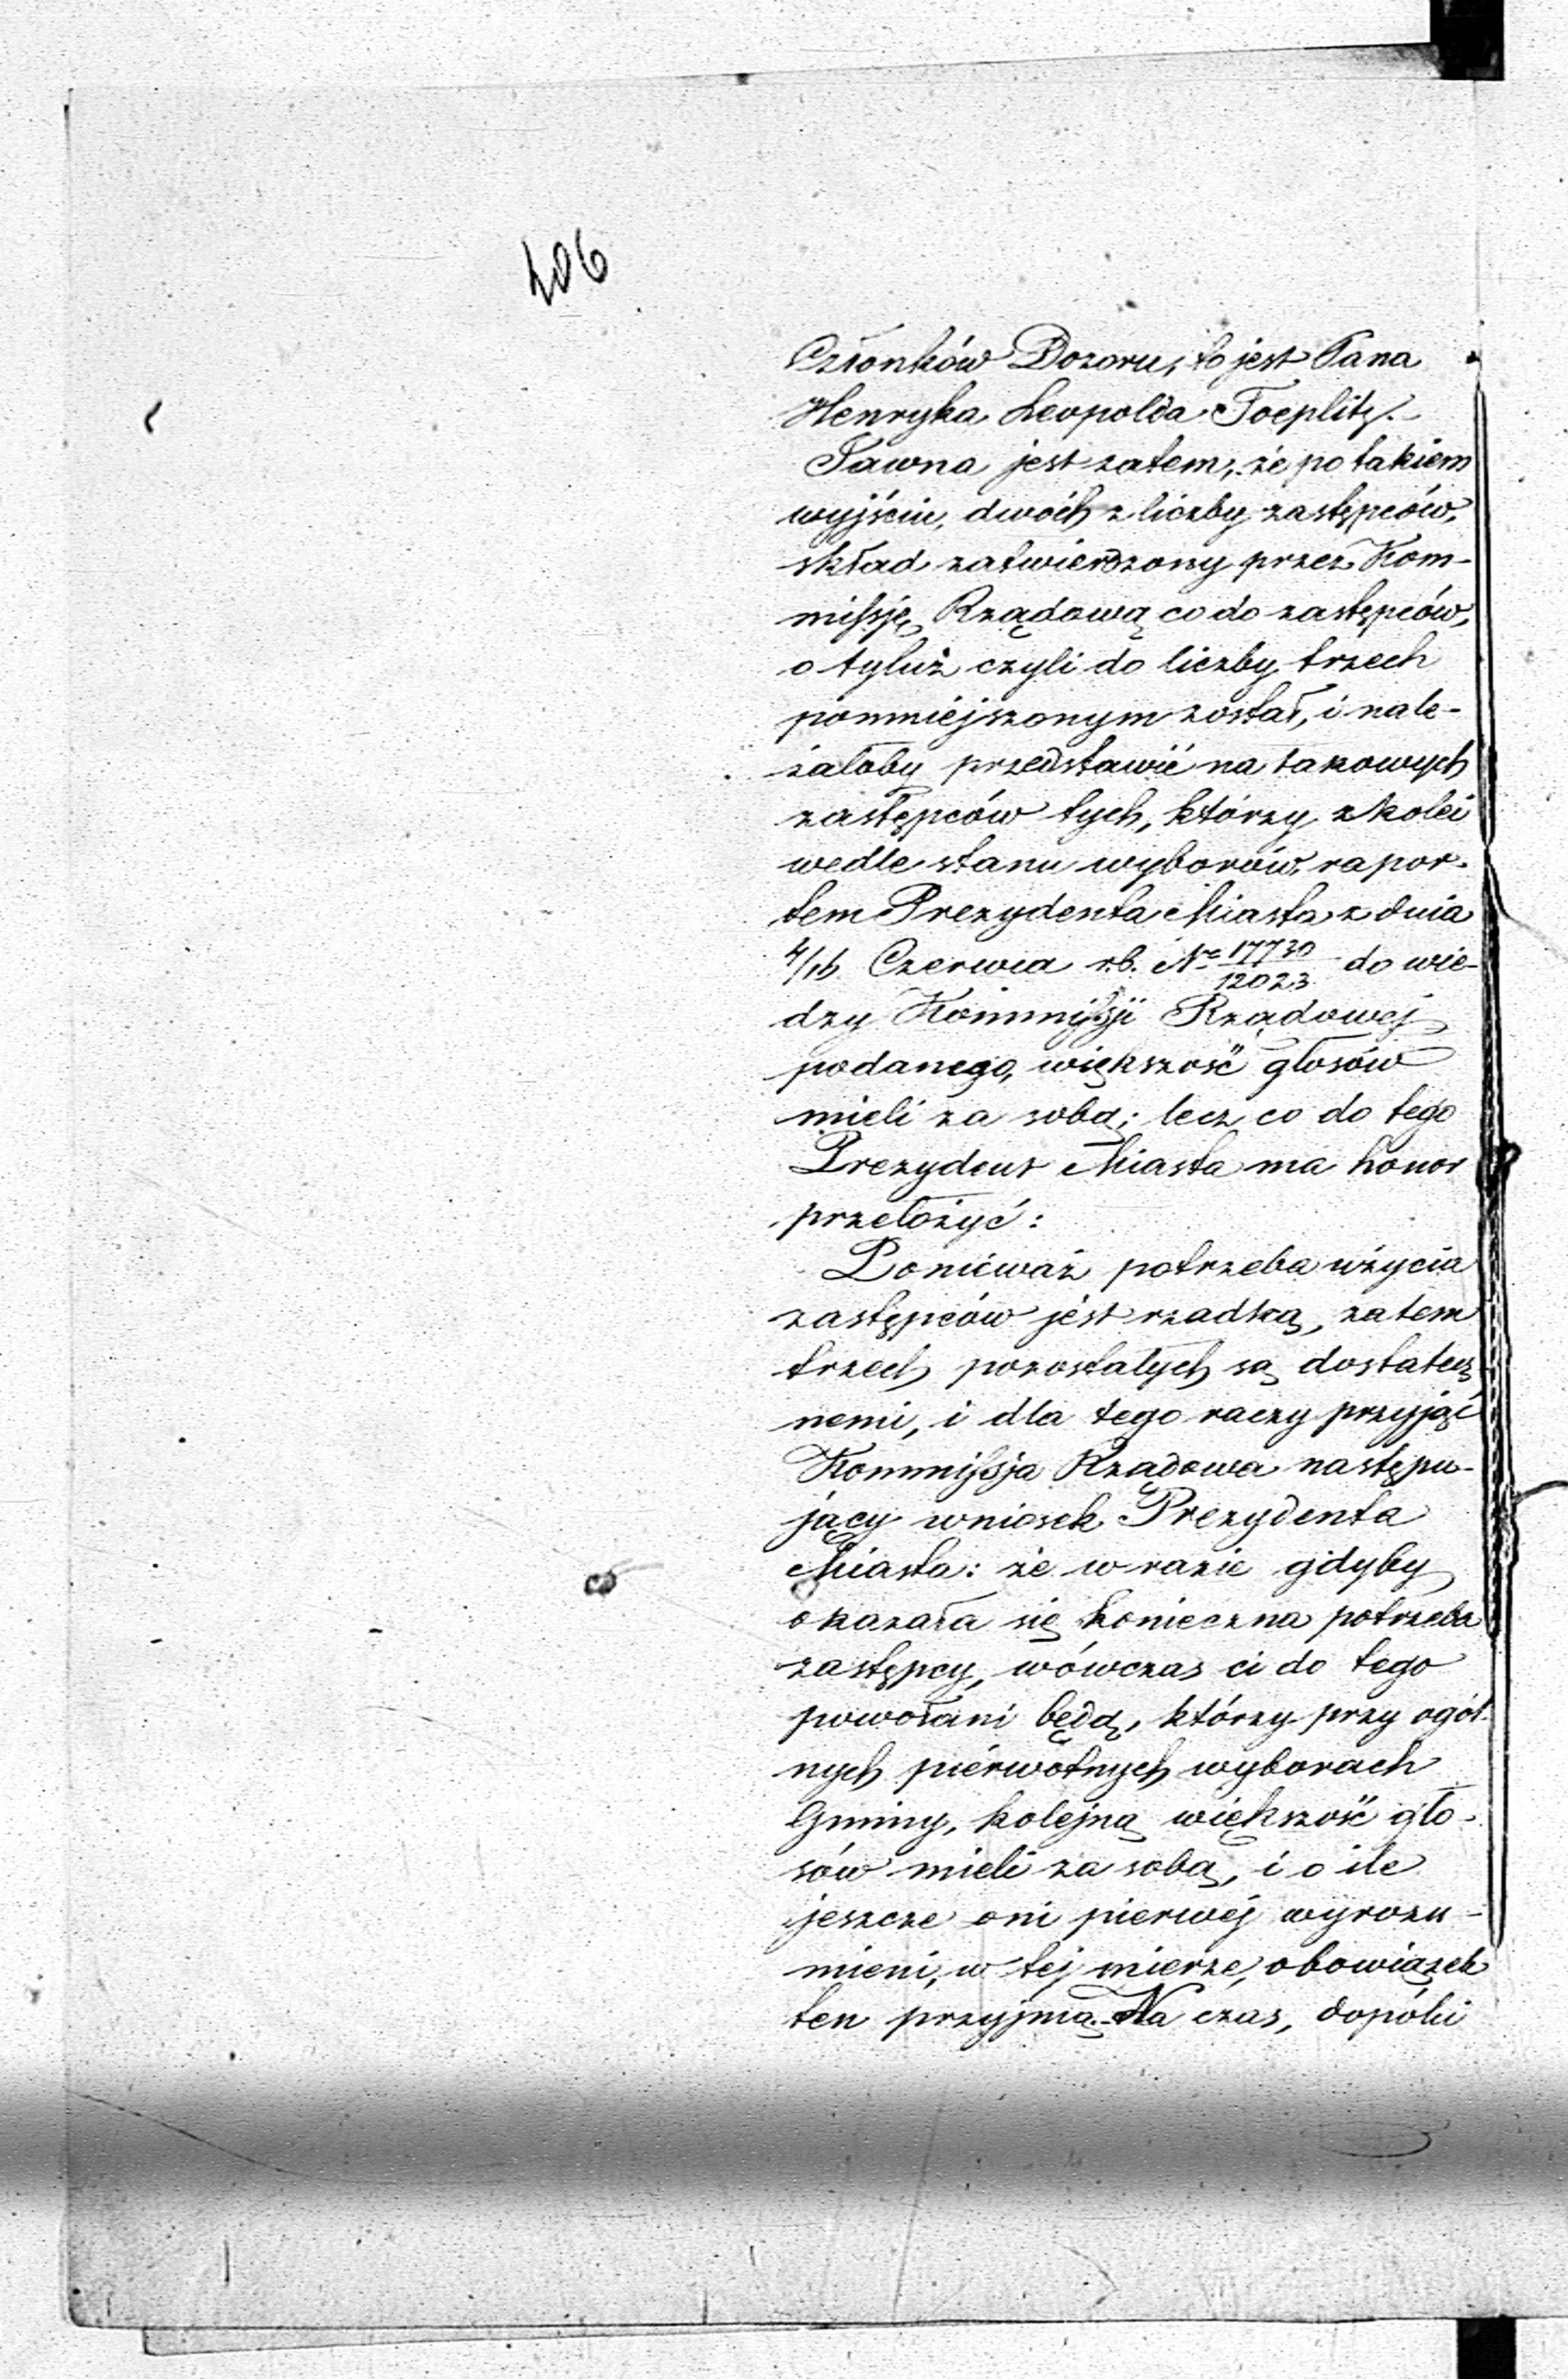 106
Członków Dozoru, to jest Pana
Henryka Leopolda Toeplitz.
Jawna jest zatem, że po takiem
wyjściu, dwóch z liczby zastępców,
skład zatwierdzony przez Kom-
missję Rządową co do zastępców,
o tyluż czyli do liczby trzech
pomniejszonym został, i nale-
żałoby przedstawić na takowych
zastępców tych, którzy z kolei
wedle stanu wyborów, rapor-
tem Prezydenta Miasta z dnia
4/16 Czerwca r.b. No 17730/12023 do wie-
dzy Kommissji Rządowej
podanego, większość głosów
mieli za sobą; lecz co do tego
Prezydent Miasta ma honor
przełożyć:
Ponieważ potrzeba użycia
zastępców jest rzadką, zatem
trzech pozostałych są dostatecz
nemi, i dla tego raczy przyjąć
Kommissja Rządowa następu-
jący wniosek Prezydenta
Miasta: że w razie gdyby
okazała się konieczna potrzeba
zastępcy, wówczas ci do tego
powołani będą, którzy przy ogól-
nych pierwotnych wyborach
Gminy, kolejną większość gło-
sów mieli za sobą, i o ile
jeszcze oni pierwej wyrozu-
mieni, w tej mierze, obowiązek
ten przyjmą. Na czas, dopóki